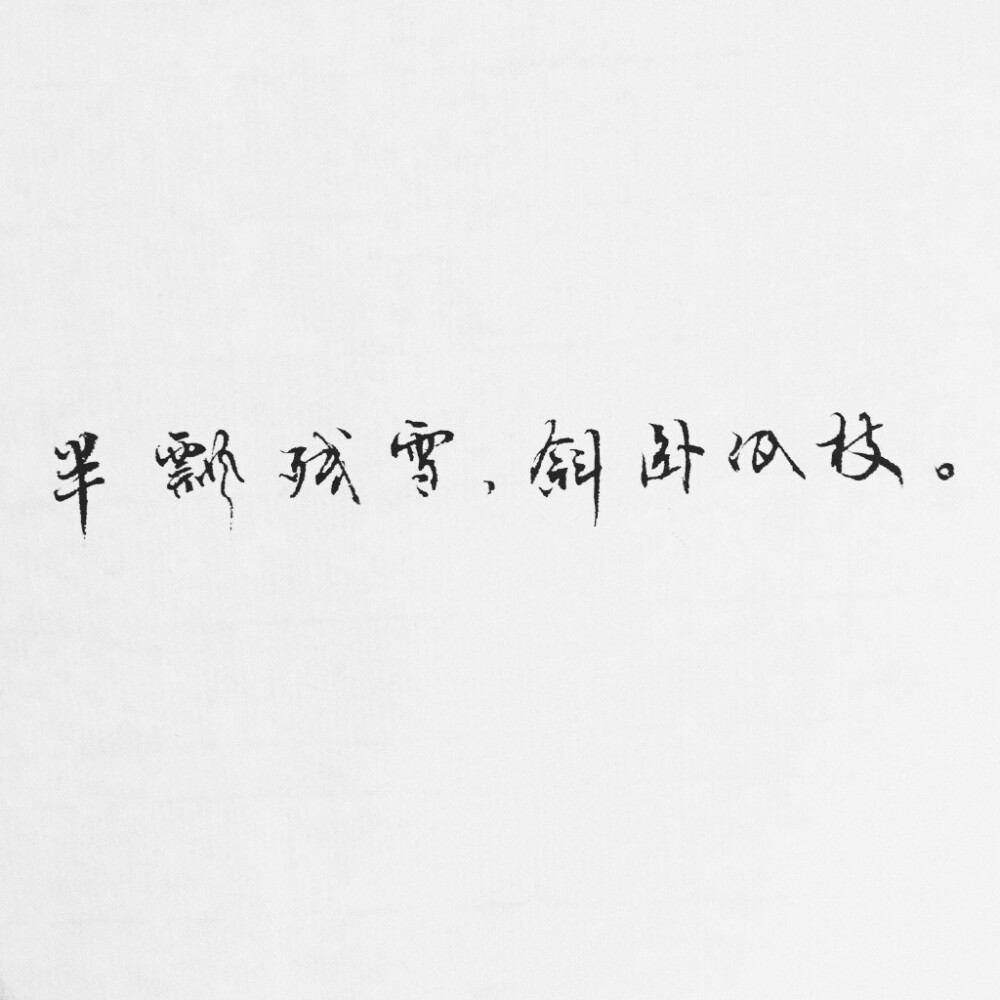 半瓢残雪，斜卧低枝。